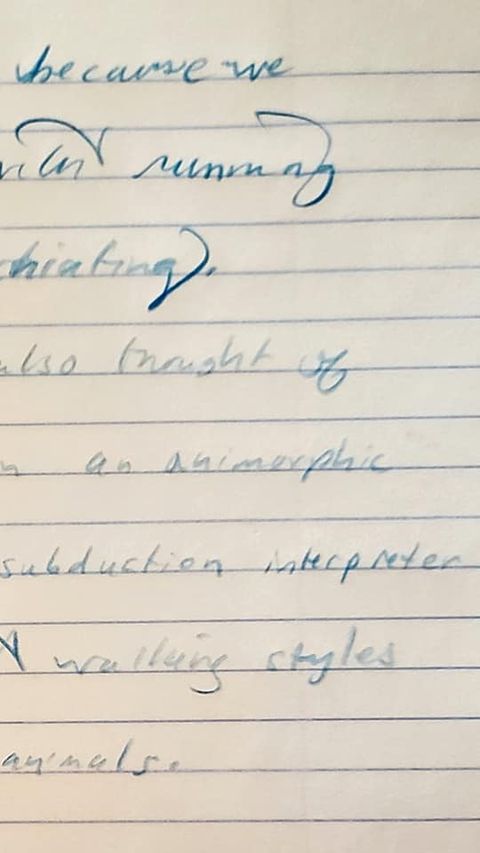 because we
running
chiating).
also thought of
n an animorphic
subduction interpreter
walking styles
animals.